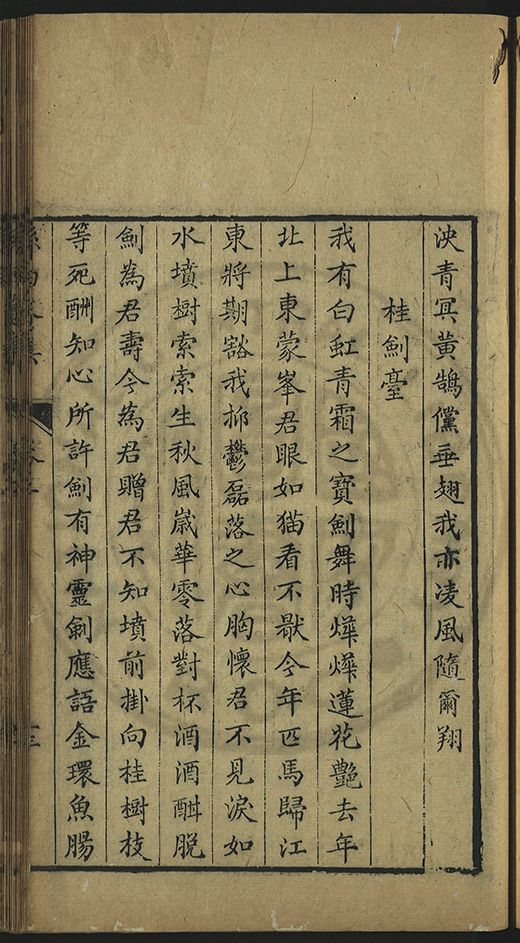 泱青冥黃鵠儻垂翅我亦凌風隨爾翔
桂劍臺
我有白虹青霜之寶劍舞時爗爗蓮花艷去年
北上東蒙峯君眼如猫看不厭今年匹馬歸江
東將期豁我抑鬱磊落之心胸懷君不見淚如
水墳樹索索生秋風歲華零落對杯酒酒酣脫
劍為君壽今為君贈君不知墳前掛向桂樹枝
等死酬知心所許劍有神靈劍應語金環魚腸